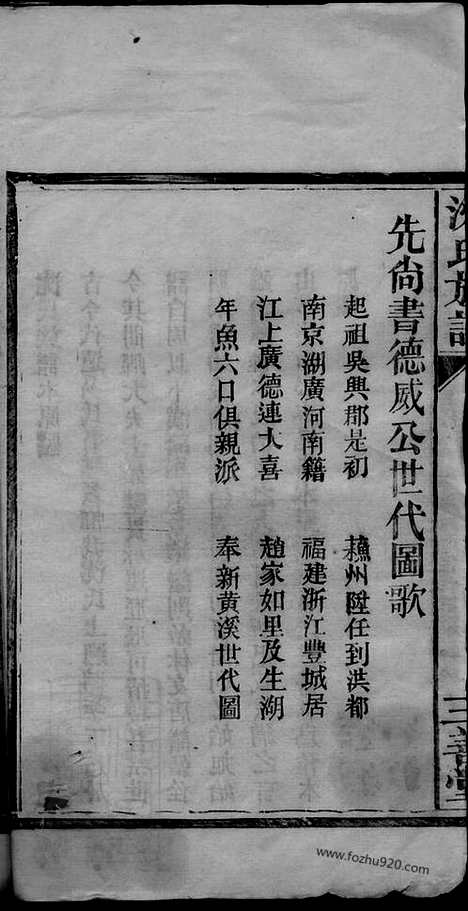 沈氏族譜
三善堂
先尚書德威公世代圖歌
起祖吳興郡是初 蘓州陞任到洪都
南京湖廣河南籍 福建浙江豐城居
江上廣德連大喜 趙家如里及生湖
年魚六口俱親派 奉新黃溪世代圖
www.fozhu920.com